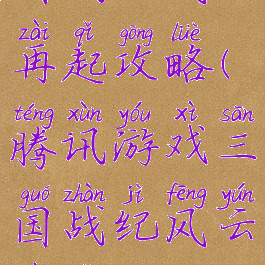 zài qǐ gōng lüè
再起攻略(
téng xùn yóu xì sān
腾讯游戏三
guó zhàn jì fēng yún
国战纪风云